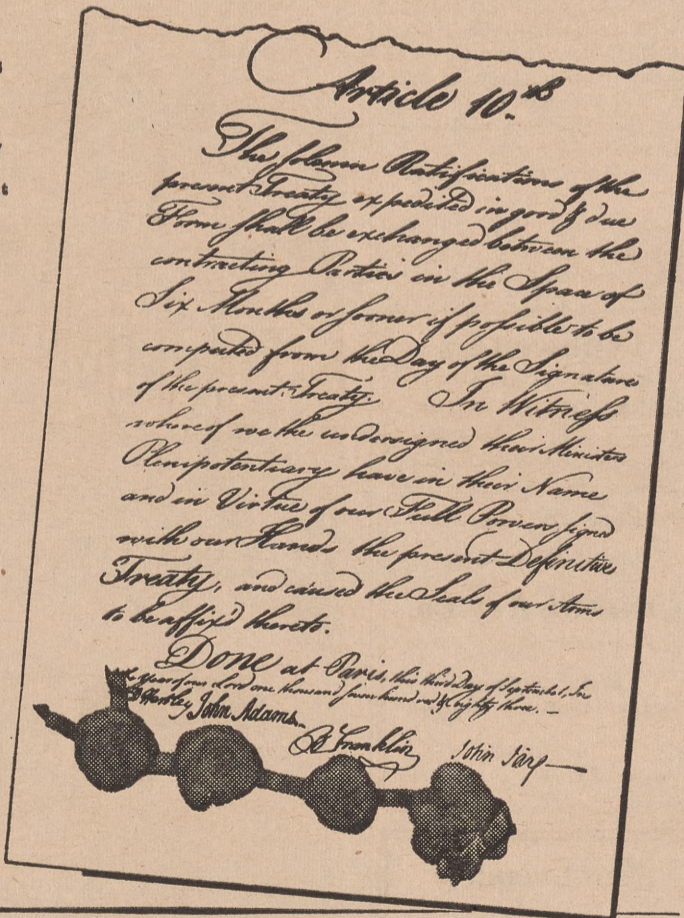 Article 10th
The solemn Ratifications of the
present Treaty expedited in good & due
Form shall be exchanged between the
contracting Parties in the Space of
Six Months or sooner if possible to be
computed from the Day of the Signature
of the present Treaty. In Witness
whereof we the undersigned their Ministers
Plenipotentiary have in their Name
and in Virtue of our Full Powers signed
with our Hands the present Definitive
Treaty, and caused the Seals of our Arms
to be affix'd thereto.
Done at Paris, this third Day of September, In
the Year of our Lord one thousand seven hundred & eighty three.
D Hartley John Adams.
B Franklin
John Jay